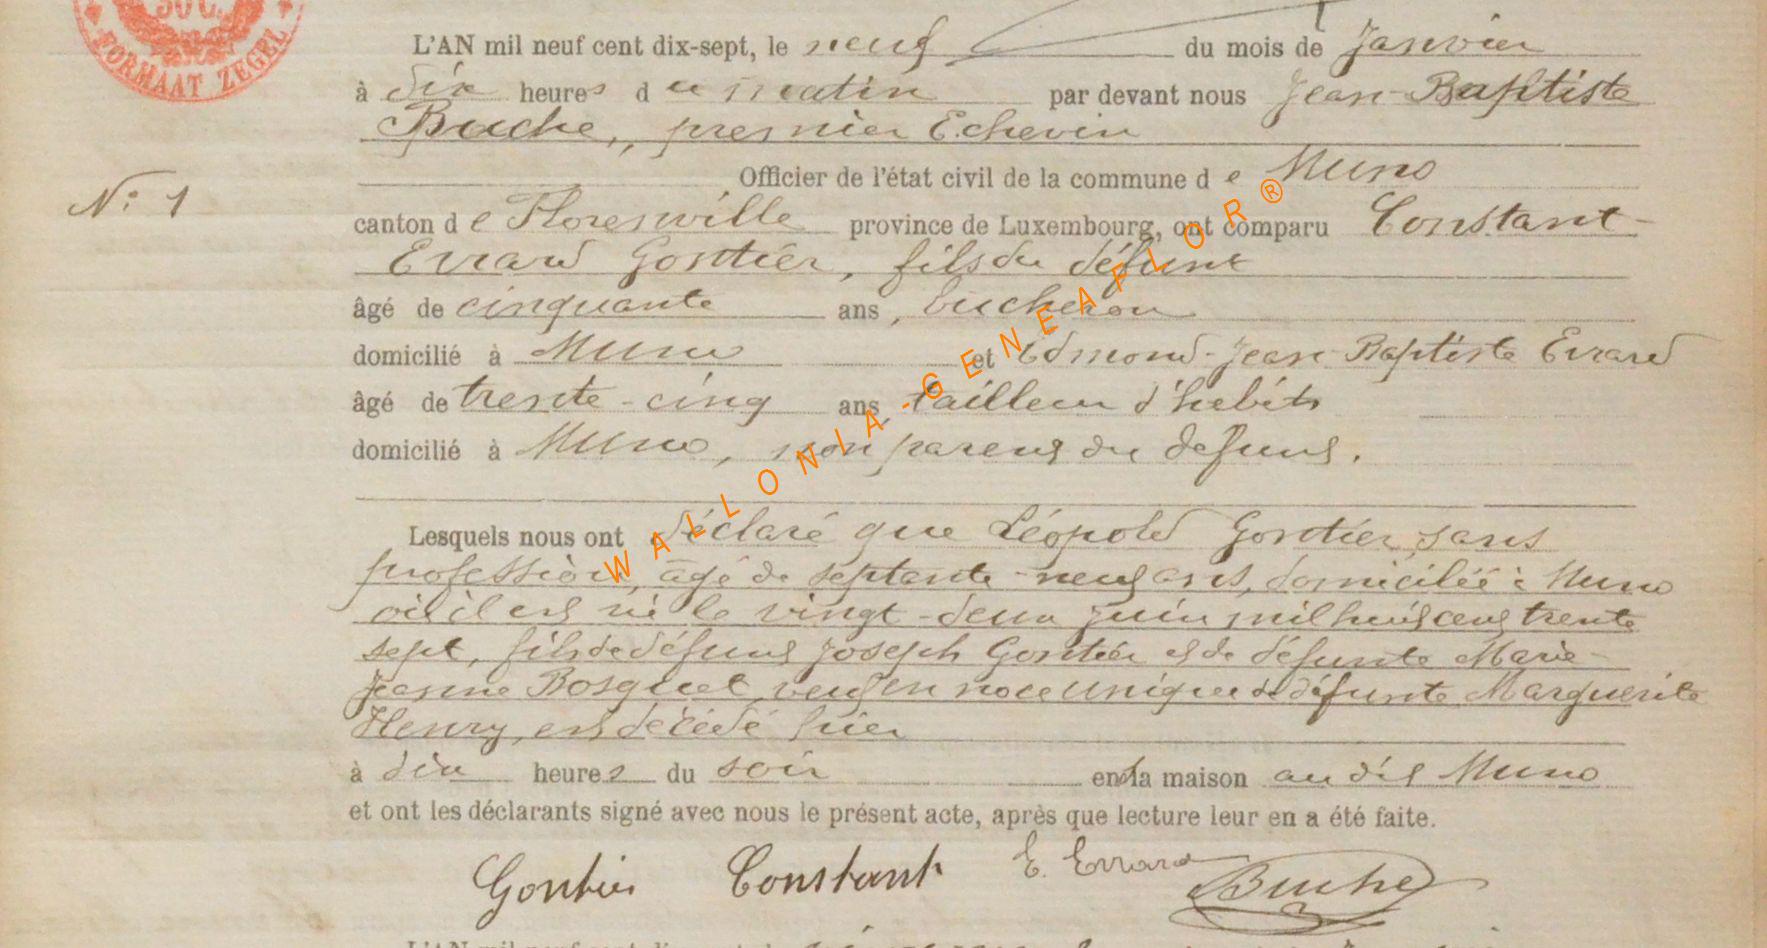 50 C.
FORMAAT ZEGEL
L'AN mil neuf cent dix-sept, le neuf du mois de Janvier
à dix heures du matin par devant nous Jean-Baptiste
Buche, premier Echevin
Officier de l'état civil de la commune de Muno
N° 1
canton de Florenville province de Luxembourg, ont comparu Constant-
Evrard Gontier, fils du défunt
âgé de cinquante ans, bucheron
domicilié à Muno et Edmond-Jean-Baptiste Evrard
âgé de trente-cinq ans tailleur d'habits
domicilié à Muno, non parent du defunt.
Lesquels nous ont déclaré que Léopold Gontier, sans
profession, âgé de septante-neuf ans, domicilié à Muno
où il est né le vingt-deux juin mil huit cent trente
sept, fils de défunt Joseph Gontier et de défunte Marie-
Jeanne Bosquet, veuf en noce unique de défunte Marguerite
Henry, est décédé hier
à dix heures du soir en sa maison au dit Muno
et ont les déclarants signé avec nous le présent acte, après que lecture leur en a été faite.
Gontier Constant E. Evrard Buche
WALLONIA-GENEAFLOR®